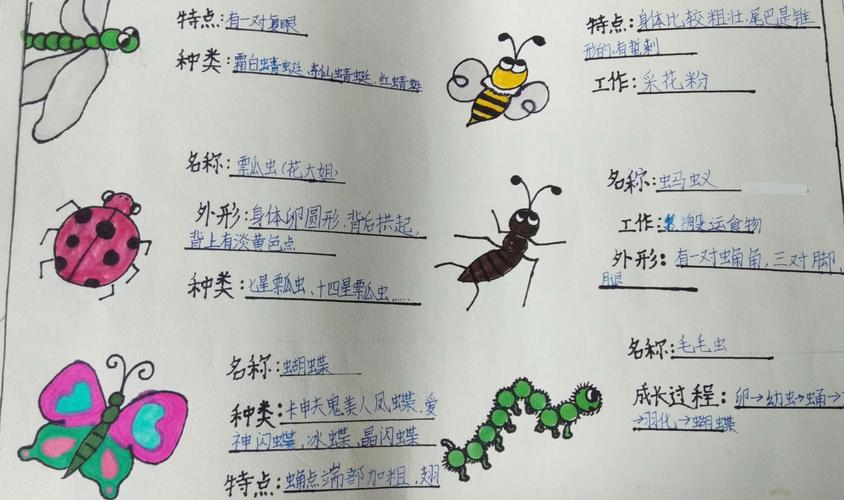 特点:有一对复眼
种类:霜白蜻蜓、东仙蜻蜓、红蜻蜓
名称:票瓜虫(花大姐)
外形:身体卵圆形,背后拱起,
背上有淡黄色点
种类:七星票瓜虫、十四星票瓜虫……
名称:蝴蝶
种类:卡申夫鬼美人凤蝶、爱
神闪蝶、冰蝶、晶闪蝶
特点:蛹点端部加粗,翅
特点:身体比较粗壮,尾巴是锥
形的,有蜇刺
工作:采花粉
名称:蚂蚁
工作:搬运食物
外形:有一对蛹角,三对脚、
腿
名称:毛毛虫
成长过程:卵→幼虫→蛹→
→羽化→蝴蝶